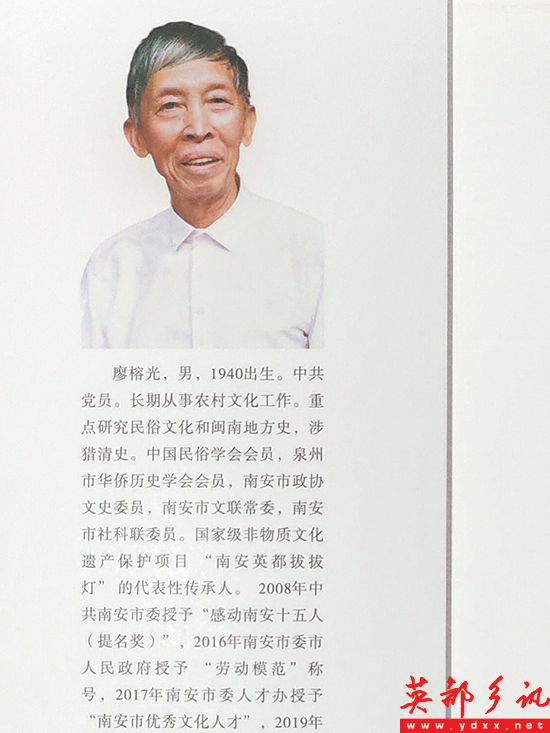 廖榕光，男，1940出生。中共
党员。长期从事农村文化工作。重
点研究民俗文化和闽南地方史，涉
猎清史。中国民俗学会会员，泉州
市华侨历史学会会员，南安市政协
文史委员，南安市文联常委，南安
市社科联委员。国家级非物质文化
遗产保护项目 “南安英都拔拔
灯” 的代表性传承人。 2008年中
共南安市委授予“感动南安十五人
（提名奖）”，2016年南安市委市
人民政府授予 “劳动模范” 称
号，2017年南安市委人才办授予
“南安市优秀文化人才”，2019年
英都乡讯
www.ydxx.net